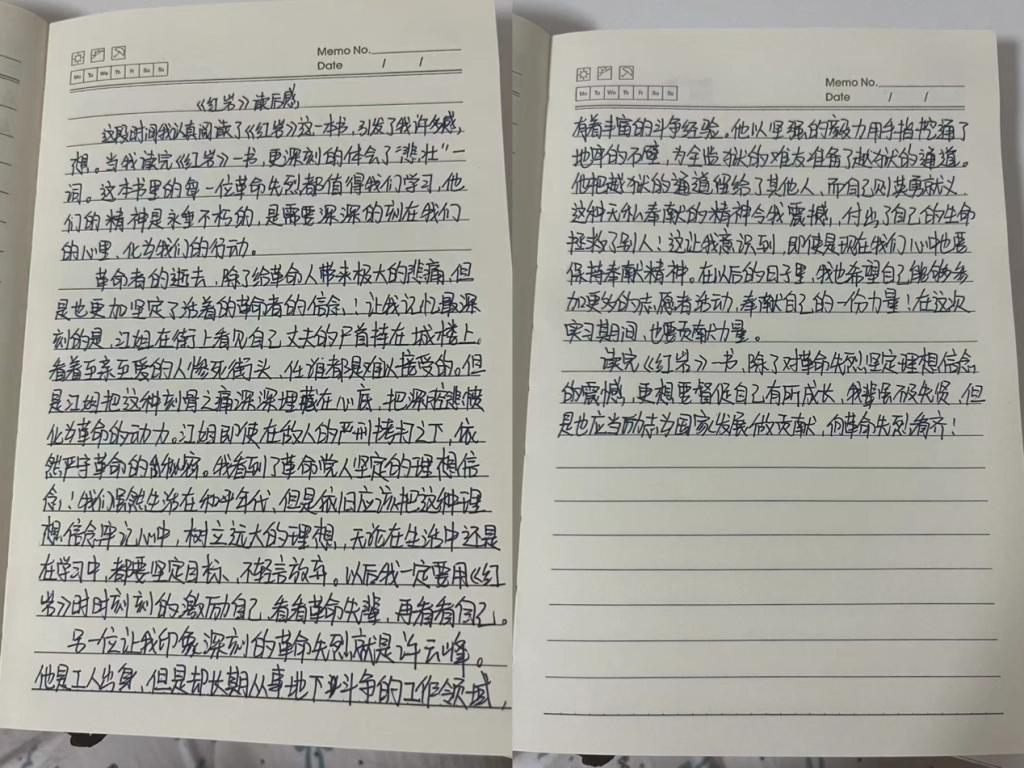 Memo No.
Date / /
Mo Tu We Th Fr Sa Su
《红岩》读后感
这段时间我认真阅读了《红岩》这一本书，引发了我许多感
想。当我读完《红岩》一书，更深刻的体会了“悲壮”一
词。这本书里的每一位革命先烈都值得我们学习，他
们的精神是永垂不朽的，是需要深深的刻在我们
的心里，化为我们的行动。
革命者的逝去，除了给革命人带来极大的悲痛，但
是也更加坚定了活着的革命者的信念！让我记忆最深
刻的是，江姐在街上看见自己丈夫的尸首挂在城楼上。
看着至亲至爱的人惨死街头，任谁都是难以接受的。但
是江姐把这种刻骨之痛深深埋藏在心底，把深痛悲愤
化为革命的动力。江姐即使在敌人的严刑拷打之下，依
然严守革命的秘密。我看到了革命党人坚定的理想信
念！我们虽然生活在和平年代，但是依旧应该把这种理
想信念牢记心中，树立远大的理想，无论在生活中还是
在学习中，都要坚定目标、不轻言放弃。以后我一定要用《红
岩》时时刻刻的激励自己，看看革命先辈，再看看自己。
另一位让我印象深刻的革命先烈就是许云峰。
他是工人出身，但是却长期从事地下斗争的工作领域，
Memo No.
Date / /
Mo Tu We Th Fr Sa Su
有着丰富的斗争经验。他以坚强的毅力用手指挖通了
地牢的石壁，为全监狱的难友准备了越狱的通道。
他把越狱的通道留给了其他人，而自己则英勇就义，
这种无私奉献的精神令我震撼，付出了自己的生命
拯救了别人！这让我意识到，即使是现在我们心中也要
保持奉献精神。在以后的日子里，我也希望自己能够参
加更多的志愿者活动，奉献自己的一份力量！在这次
实习期间，也要贡献力量。
读完《红岩》一书，除了对革命先烈坚定理想信念
的震撼，更想要督促自己有所成长，我辈虽不及先贤，但
是也应当励志为国家发展做贡献，向革命先烈看齐！